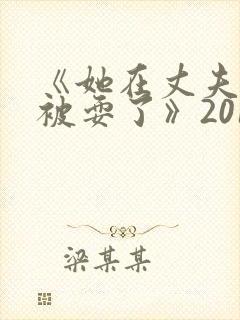 《她在丈夫
被耍了》201
梁某某